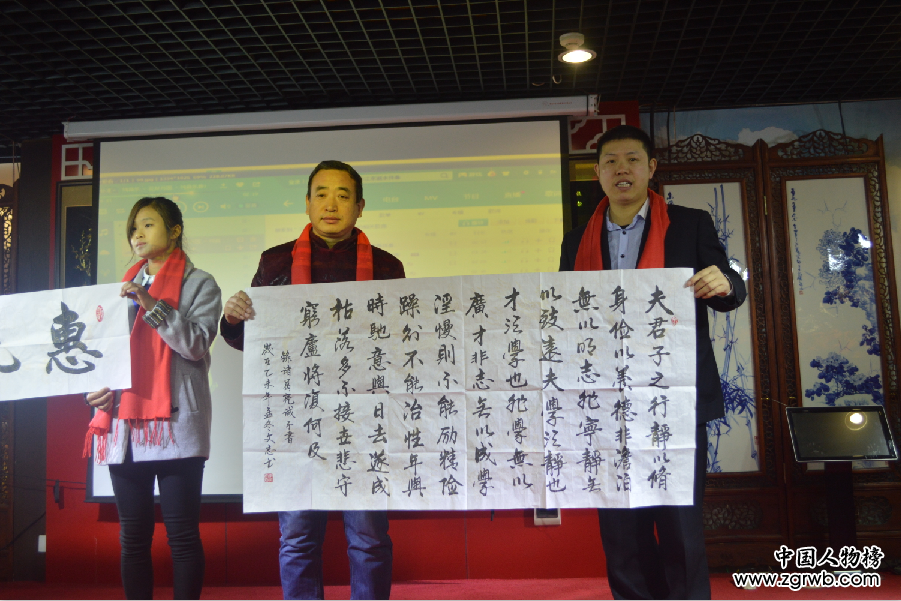 夫君子之行靜以脩
身儉以養德非澹泊
無以明志非寧靜無
以致遠夫學須靜也
才須學也非學無以
廣才非志無以成學
淫慢則不能励精險
躁則不能治性年與
時馳意與日去遂成
枯落多不接世悲守
窮廬將復何及
錄諸葛亮誡子書
歲在乙未年孟冬
惠
中国人物榜
www.zgrwb.com